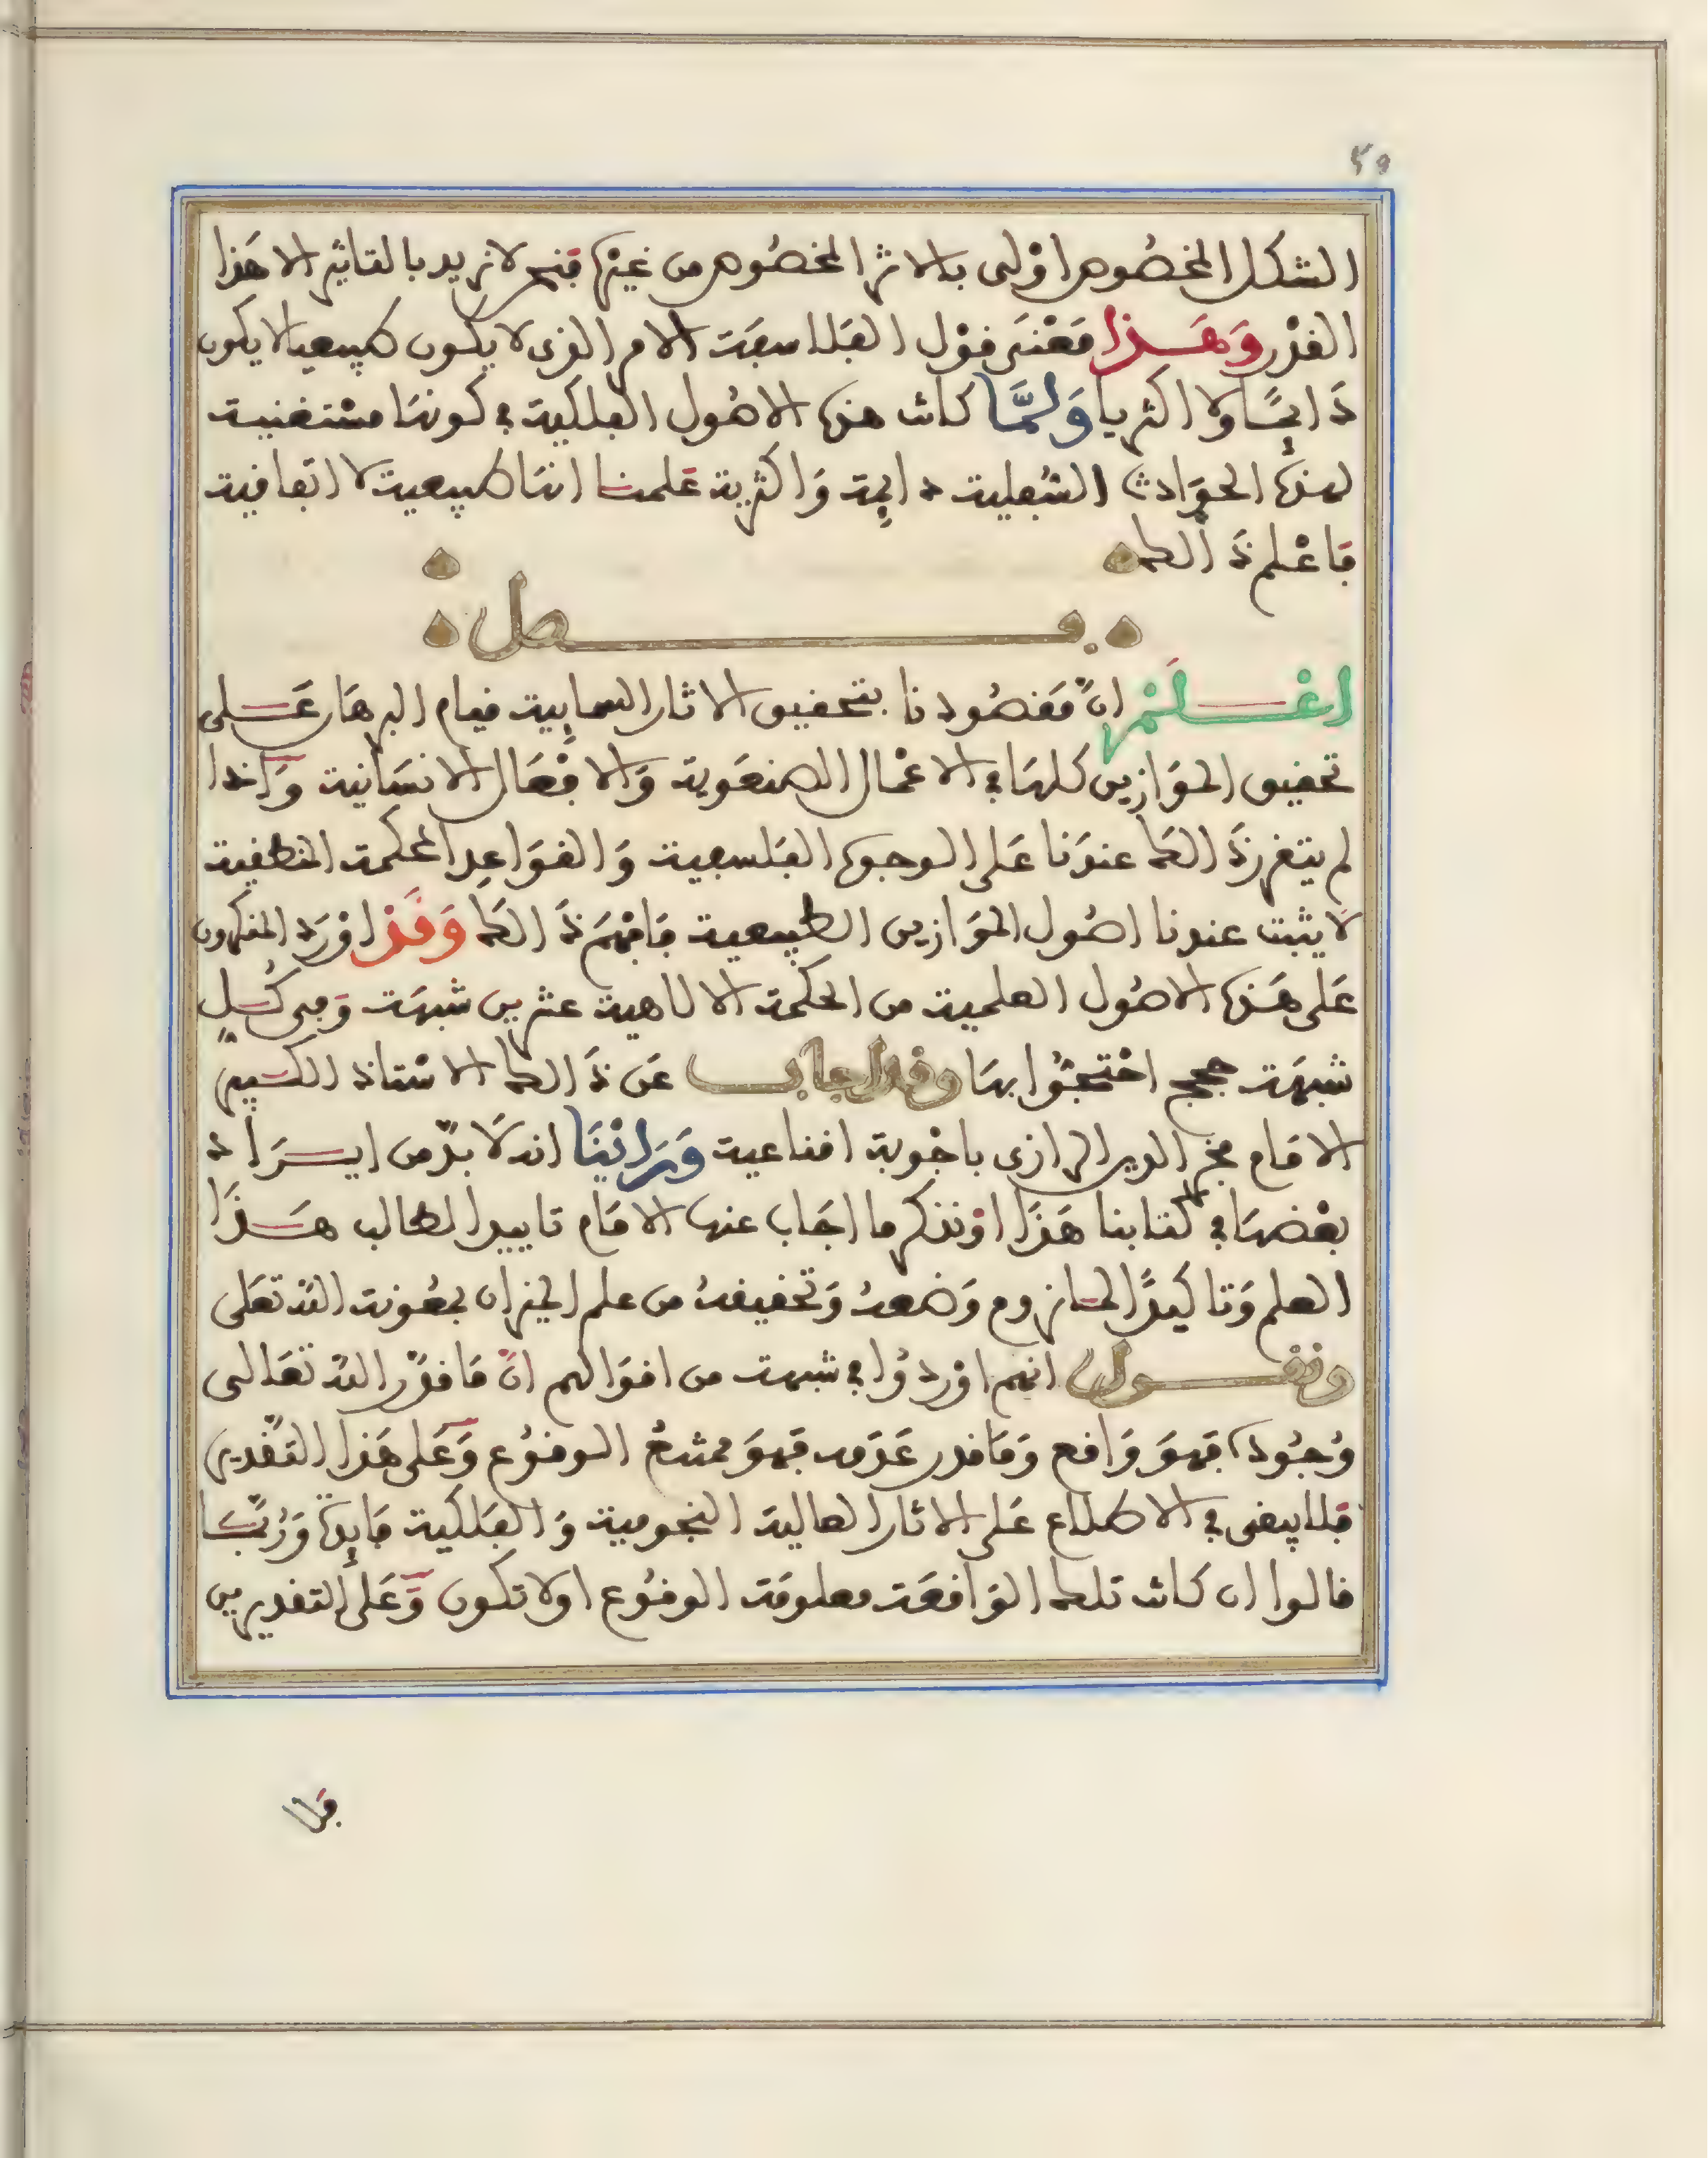 ٥٩
الشكل المخصوص اوْلى بالاثر المخصُوص من غيره فنحن لا نريد بالتاثير الا هَذا
القدْر وَهَـذا مَعْنَى قوْل الفلاسفة الامر الذي لا يكون طبيعيا لا يكون
دَائمًا ولا اكثريا وَلمَّا كانت هذه الاصُول الفلكية في كونها مقتضية
لهذه الحوَادث السُفلية دائمة وَاكثرية عَلمنا انها طبيعية لا اتفاقية
فاعْلم ذَالك
فصل
اعْـلَمْ انَّ مَقصُودنا بتحقيق الاثار السمايية قيام البرهَان عَـلى
تحقيق الموَازين كلهَا في الاعْمال الصنعَوية وَالافعَال الانسَانية وَاذا
لم يتقرر ذَالك عندنا عَلى الوجوه الفلسفية وَالقوَاعِد المحكمة المنطقية
لا يثبت عندنا اصُول الموَازين الطبيعية فافهَم ذَالك وَقَدْ اوْرَد المنكرون
عَلى هَذه الاصُول العلمية من الحكمة الالاهية عشرين شبهَة وَفي كُـل
شبهَة حجج احْتجُّوا بهَا وقد اجاب عَن ذَالك الاسْتاذ الكـبير
الامَام فخر الدين الرازي باجْوبة اقناعية وَرَايْنَا انه لَا بدّ من ايـرَاد
بعْضهَا في كتابنا هَذَا اوْ نذكر ما اجَاب عنها الامَام تاييدا لطالب هَـذَا
العلم وَتاكيدًا لما نروم وَضعه وَتحقيقهُ من علم الميزان بمعُونة الله تعَلى
ونقـول انهم اوْردوُا في شبهة من اقوَالهم انَّ مَا قدَّر الله تعَالى
وُجُوده فهوَ وَاقع وَمَا قدر عَدَمه فهوَ ممتنعُ الوقوُع وَعَلى هَذا التقْدير
فلا يبقى في الاطلاع عَلى الاثار العالية النجومية وَالفلكية فايدة وَرُبَّـما
قالوا ان كانت تلك الوَاقعَة معلومَة الوقوُع اولا تكون وَعَلى التقديرين
فلا